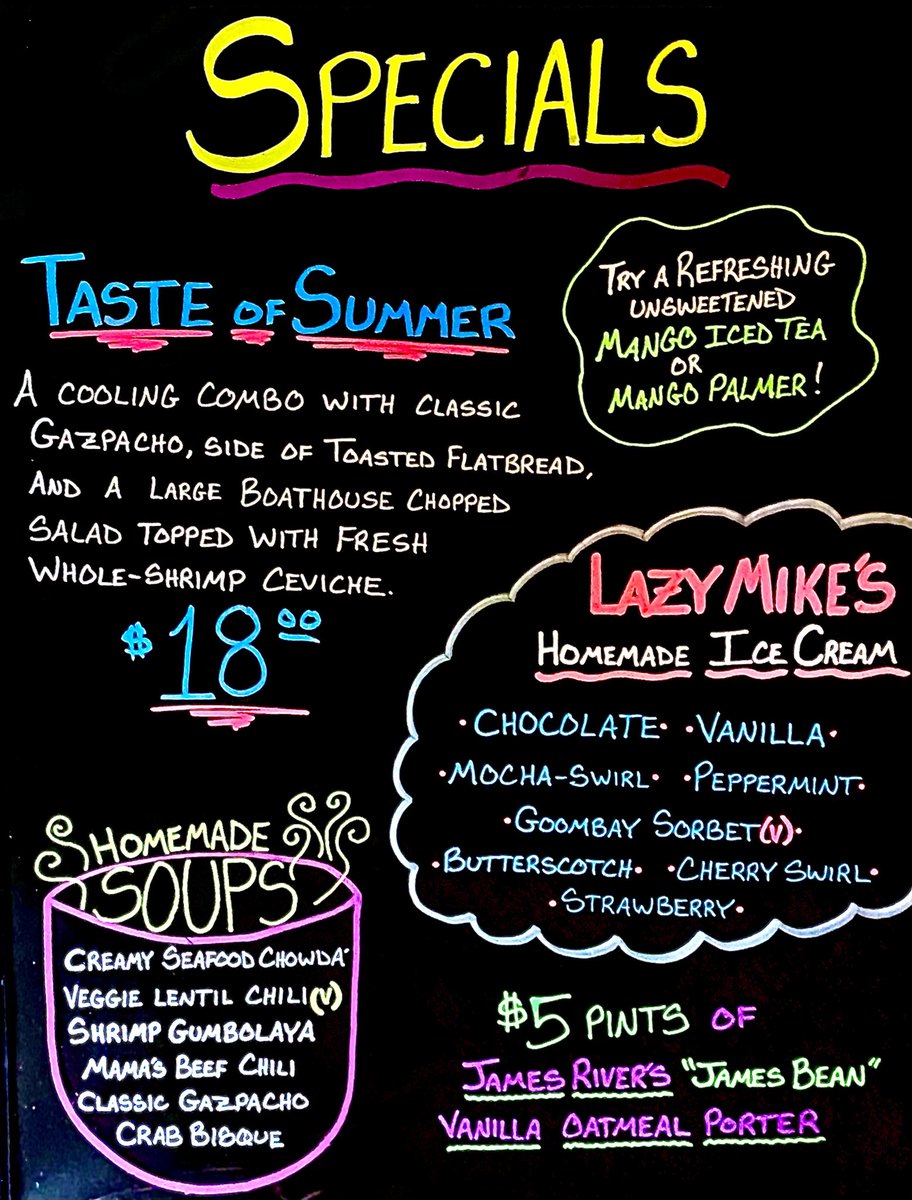 SPECIALS
TASTE OF SUMMER
A COOLING COMBO WITH CLASSIC
GAZPACHO, SIDE OF TOASTED FLATBREAD,
AND A LARGE BOATHOUSE CHOPPED
SALAD TOPPED WITH FRESH
WHOLE-SHRIMP CEVICHE.
$18.00
TRY A REFRESHING
UNSWEETENED
MANGO ICED TEA
OR
MANGO PALMER!
LAZY MIKE'S
HOMEMADE ICE CREAM
•CHOCOLATE• •VANILLA•
•MOCHA-SWIRL• •PEPPERMINT•
•GOOMBAY SORBET(V)•
•BUTTERSCOTCH• •CHERRY SWIRL•
•STRAWBERRY•
HOMEMADE
SOUPS
CREAMY SEAFOOD CHOWDA'
VEGGIE LENTIL CHILI(V)
SHRIMP GUMBOLAYA
MAMA'S BEEF CHILI
CLASSIC GAZPACHO
CRAB BISQUE
$5 PINTS OF
JAMES RIVER'S "JAMES BEAN"
VANILLA OATMEAL PORTER